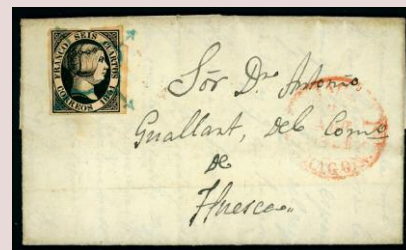 FRANCO SEIS CUARTOS
CORREOS 1851
Sór Dn. Antonio
Guallart, del Como
de
Huesca